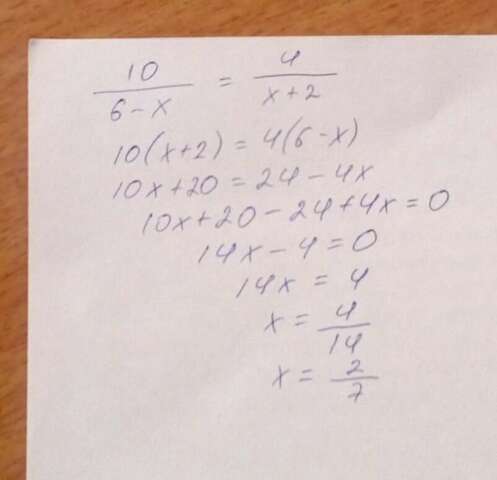 10/(6-x) = 4/(x+2)
10(x+2) = 4(6-x)
10x+20 = 24-4x
10x+20-24+4x = 0
14x-4 = 0
14x = 4
x = 4/14
x = 2/7